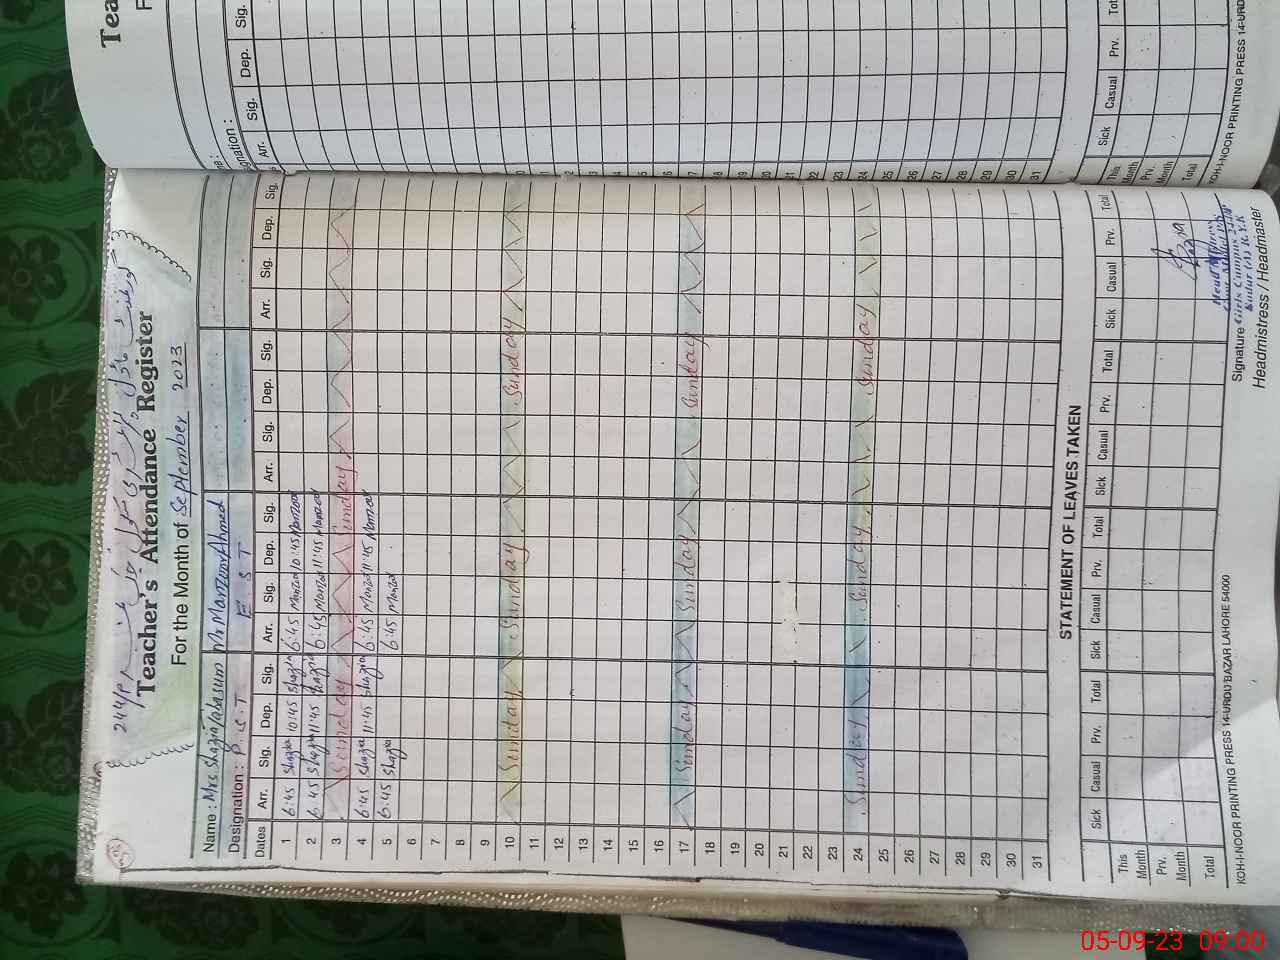 Teacher's Attendance Register
For the Month of September 2023
Name : Mrs Shazia Mr Manzoor Ahmed
Designation : P.S.T E S T
Dates Arr. Sig. Dep. Sig. Arr. Sig. Dep. Sig. Arr. Sig. Dep. Sig. Arr. Sig. Dep. Sig.
1 6:45 Shazia 10:45 Shazia 6:45 Manzoor 10:45 Manzoor
2 6:45 Shazia 11:45 Shazia 6:45 Manzoor 11:45 Manzoor
3 Sunday Sunday
4 6:45 Shazia 11:45 Shazia 6:45 Manzoor 11:45 Manzoor
5 6:45 Shazia 6:45 Manzoor
6
7
8
9
10 Sunday Sunday Sunday
11
12
13
14
15
16
17 Sunday Sunday Sunday
18
19
20
21
22
23
24 Sunday Sunday Sunday
25
26
27
28
29
30
31
STATEMENT OF LEAVES TAKEN
Sick Casual Prv. Total Sick Casual Prv. Total Sick Casual Prv. Total Sick Casual Prv. Total
This Month
Prv. Month
Total
KOH-I-NOOR PRINTING PRESS 14-URDU BAZAR LAHORE 54000
Signature
Headmistress / Headmaster
Tea
F
nation :
Arr. Sig. Dep. Sig.
17
18
19
20
21
22
23
24
25
26
27
28
29
30
31
Sick Casual Prv. Tot
This Month
Prv. Month
Total
KOH-I-NOOR PRINTING PRESS 14-URD
05-09-23 09:00